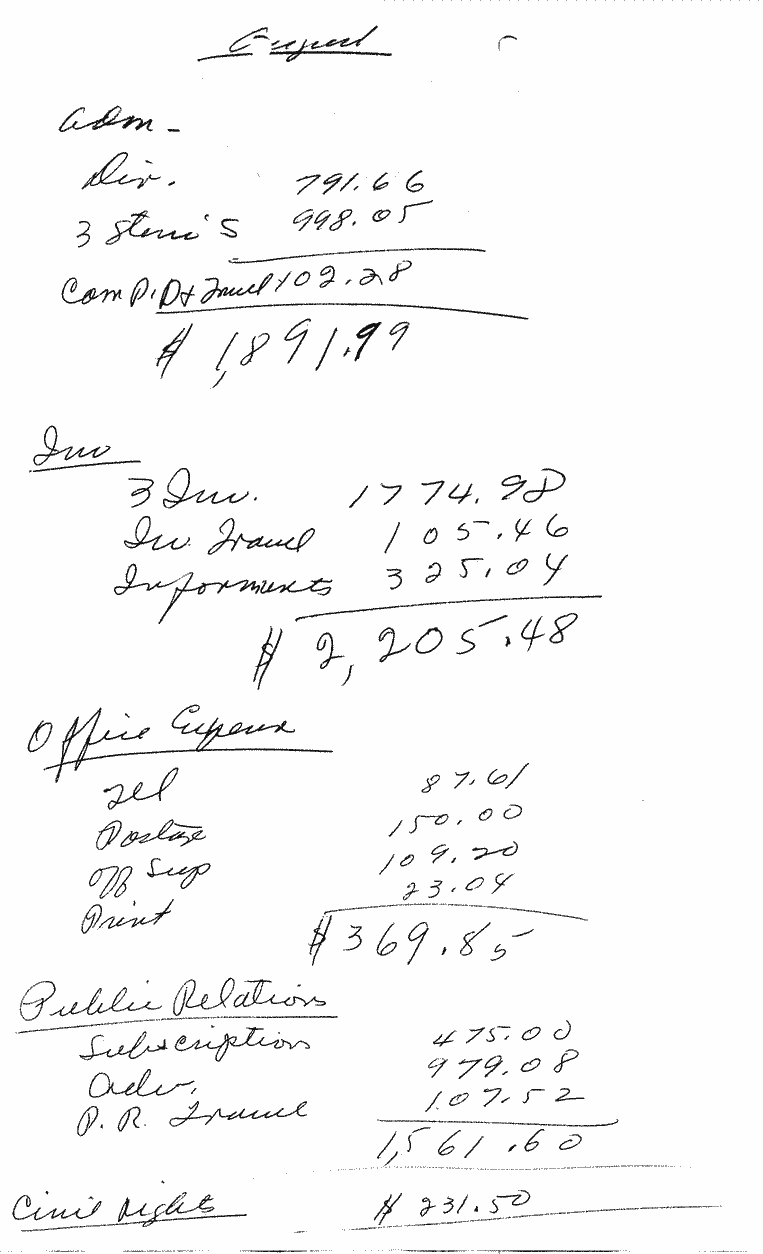 August
Adm -
Dir. 791.66
3 Steno's 998.05
Com P.D+ Travel 102.28
$ 1,891.99
Inv
3 Inv. 1774.98
Inv. Travel 105.46
Informents 325.04
$ 2,205.48
Office Expense
Tel 87.61
Postage 150.00
Off Sup 109.20
Print 23.04
$ 369.85
Public Relations
Subscriptions 475.00
Adv. 979.08
P.R. Travel 107.52
1,561.60
Civil Rights $ 231.50